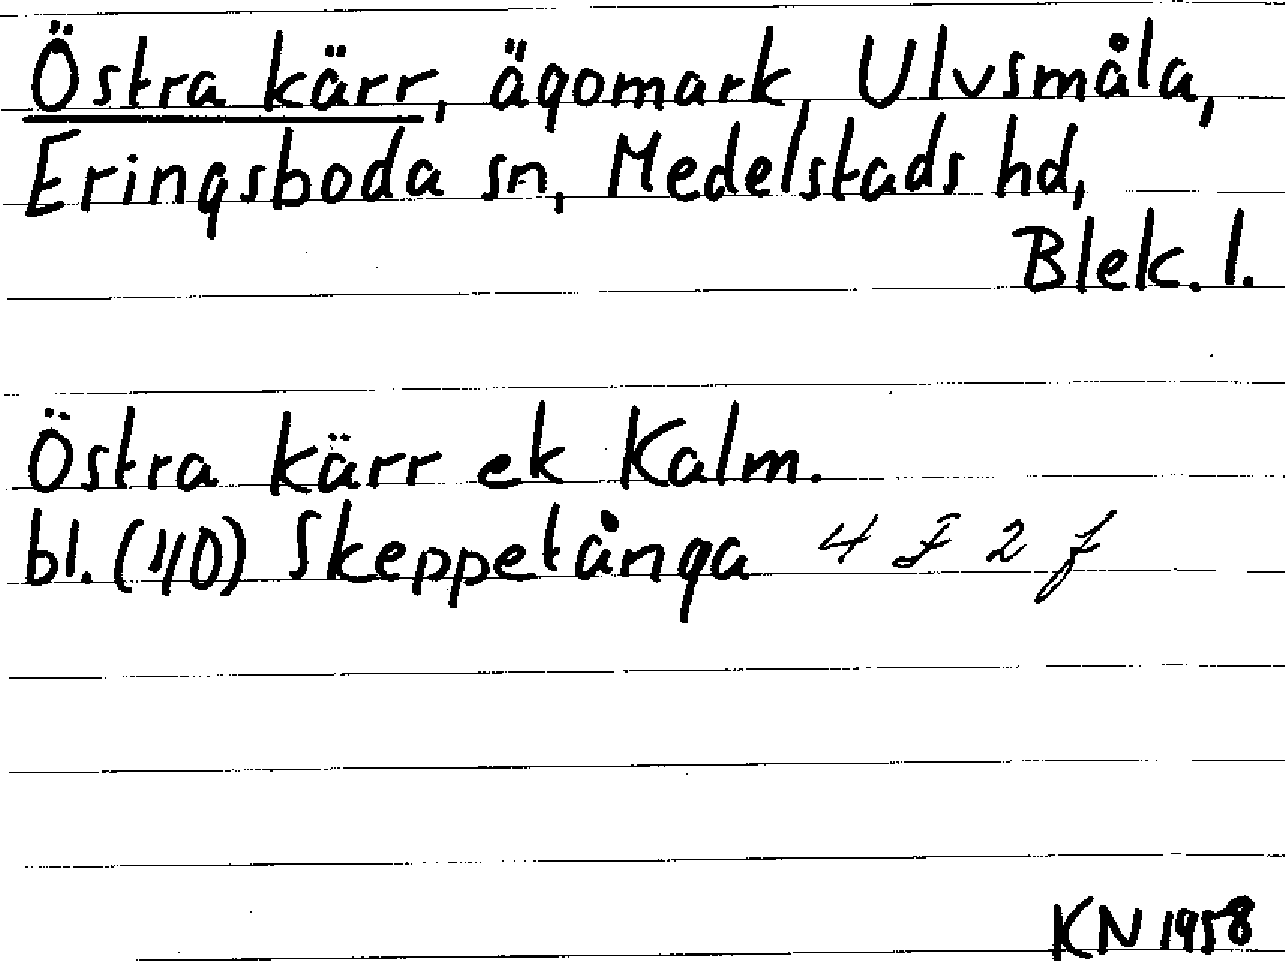 Östra kärr, ägomark, Ulvsmåla,
Eringsboda sn, Medelstads hd,
Blek. l.
Östra kärr ek Kalm.
bl. (40) Skeppetånga 4 F 2 f
KN 1958